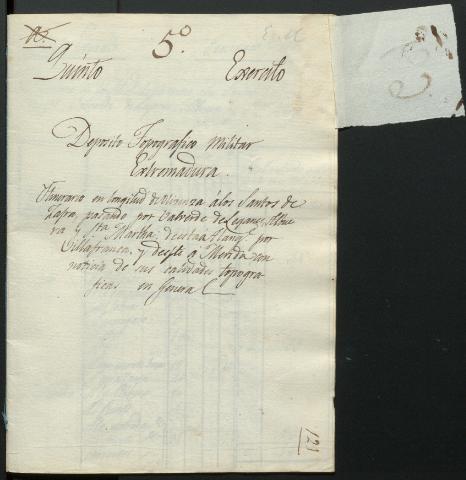 5.º
Quinto Exercito
Deposito Topografico Militar
Extremadura.
Itinerario en longitud de Olivenza á los Santos de
Zafra, pasando por Valverde de Leganes, Albue
ra y Sta Martha: de esta á por
Villafranca, y desde á Merida con
noticia de sus calidades topogra
ficas en General
121